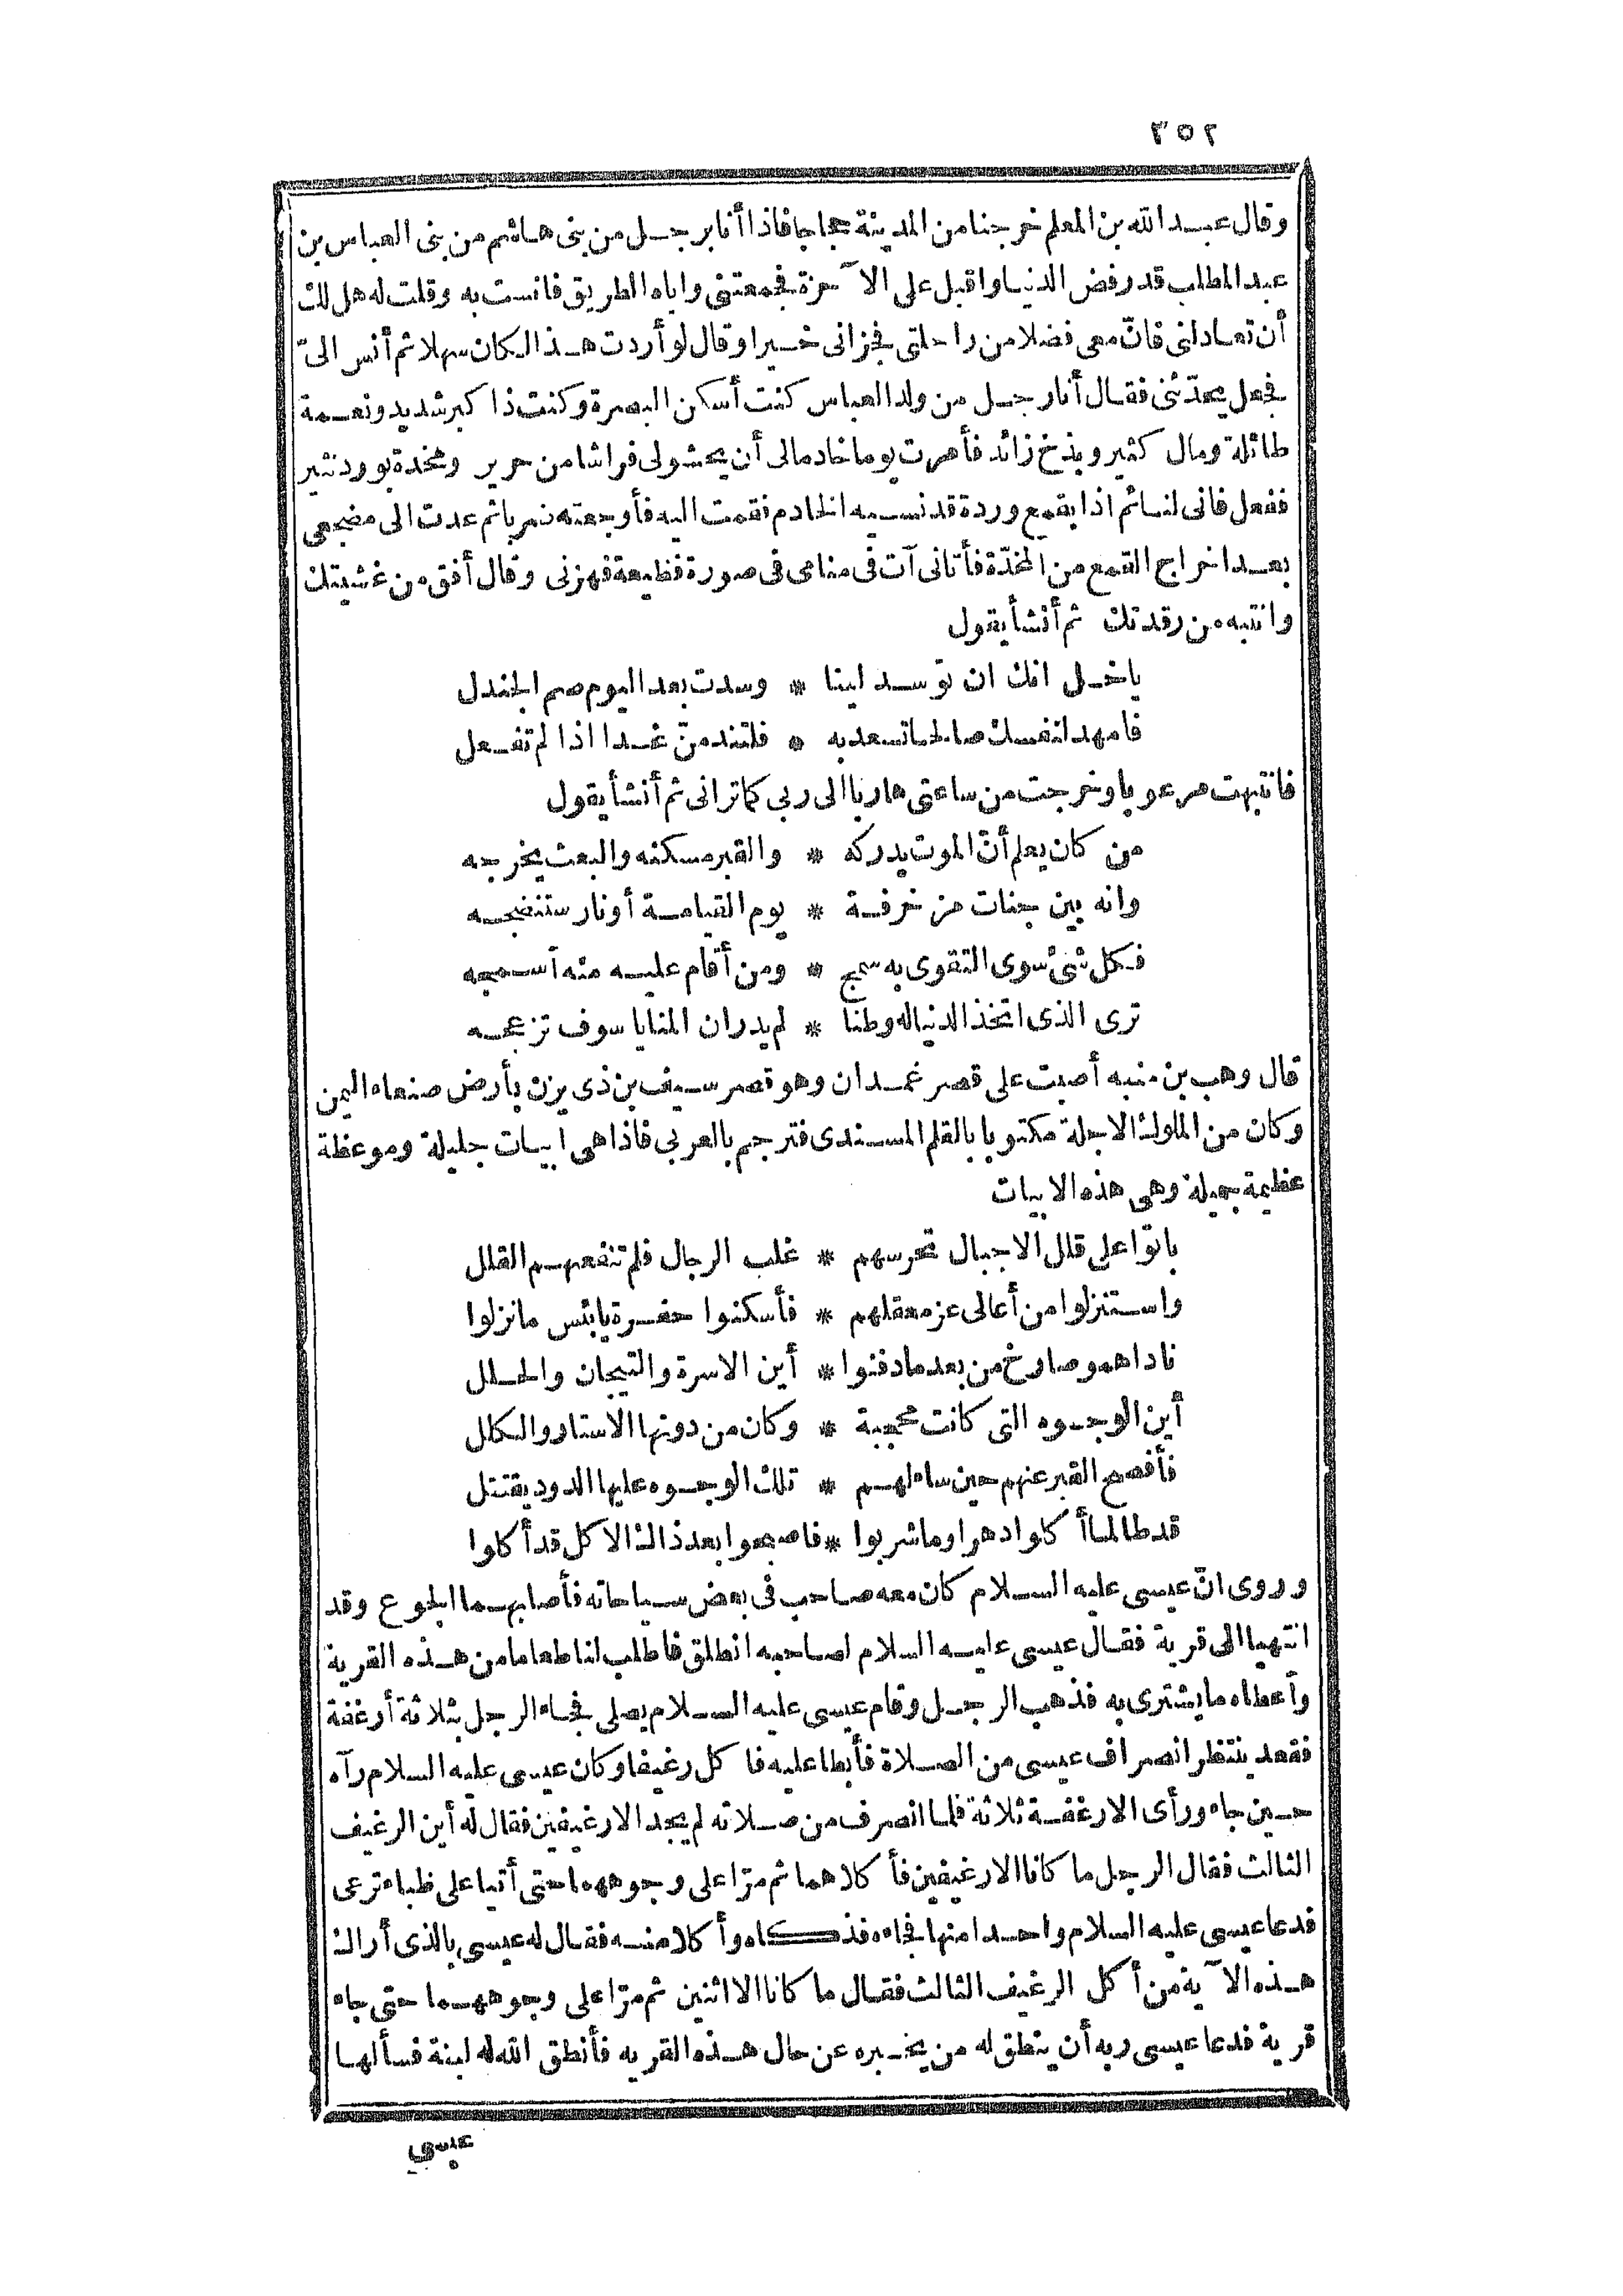 ٢٥٢
وقال عبد الله بن المعلم خرجنا من المدينة حجاجا فاذا أنا برجل من بنى هاشم من بنى العباس بن
عبد المطلب قد رفض الدنيا واقبل على الآخرة فجمعتنى واياه الطريق فانست به وقلت له هل لك
أن تعادلنى فانّ معى فضلا من راحلتى فجزانى خيرا وقال لو أردت هذا لكان سهلا ثم أنس الىّ
فجعل يحدّثنى فقال أنا رجل من ولد العباس كنت أسكن البصرة وكنت ذا كبر شديد ونعمة
طائلة ومال كثير وبذخ زائد فأمرت يوما خادما لى أن يحشو لى فراشا من حرير ومخدة بورد نثير
ففعل فانى لنائم اذا بقمع وردة قد نسيه الخادم فقمت اليه فأوجعته ضربا ثم عدت الى مضجعى
بعد اخراج القمع من المخدّة فأتانى آت فى منامى فى صورة فظيعة فهزنى وقال أفق من غشيتك
وانتبه من رقدتك ثم أنشأ يقول
ياخل انك ان توسد لينا * وسدت بعد اليوم صم الجندل
فامهد لنفسك صالحا تسعد به * فلتندمنّ غدا اذا لم تفعل
فانتبهت مرعوبا وخرجت من ساعتى هاربا الى ربى كما ترانى ثم أنشأ يقول
من كان يعلم أنّ الموت يدركه * والقبر مسكنه والبعث يخرجه
وانه بين جنات مزخرفة * يوم القيامة أو نار ستنضجه
فكل شئ سوى التقوى به سمج * ومن أقام عليه منه أسمجه
ترى الذى اتخذ الدنيا له وطنا * لم يدر ان المنايا سوف تزعجه
قال وهب بن منبه أصبت على قصر غمدان وهو قصر سيف بن ذى يزن بأرض صنعاء اليمن
وكان من الملوك الاجلة مكتوبا بالقلم المسندى فترجم بالعربى فاذا هى ابيات جليلة وموعظة
عظيمة جميلة وهى هذه الابيات
باتوا على قلل الاجبال تحرسهم * غلب الرجال فلم تنفعهم القلل
واستنزلوا من أعالى عز معقلهم * فأسكنوا حفرة يابئس ما نزلوا
ناداهمو صارخ من بعد ما دفنوا * أين الاسرة والتيجان والحلل
أين الوجوه التى كانت محجبة * وكان من دونها الاستار والكلل
فأفصح القبر عنهم حين ساءلهم * تلك الوجوه عليها الدود يقتتل
قد طالما أكلوا دهرا وما شربوا * فاصبحوا بعد ذاك الاكل قد أكلوا
وروى انّ عيسى عليه السلام كان معه صاحب فى بعض سياحاته فأصابهما الجوع وقد
انتهيا الى قرية فقال عيسى عليه السلام لصاحبه انطلق فاطلب لنا طعاما من هذه القرية
وأعطاه ما يشترى به فذهب الرجل وقام عيسى عليه السلام يصلى فجاء الرجل بثلاثة أرغفة
فقعد ينتظر انصراف عيسى من الصلاة فأبطا عليه فاكل رغيفا وكان عيسى عليه السلام رآه
حين جاء ورأى الارغفة ثلاثة فلما انصرف من صلاته لم يجد الارغيفين فقال له أين الرغيف
الثالث فقال الرجل ما كانا الارغيفين فأكلاهما ثم مرّا على وجوههما حتى أتيا على ظباء ترعى
فدعا عيسى عليه السلام واحدا منها فجاءه فذكاه وأكلا منه فقال له عيسى بالذى أراك
هذه الآية من أكل الرغيف الثالث فقال ما كانا الااثنين ثم مرّا على وجوههما حتى جاء
قرية فدعا عيسى ربه أن ينطق له من يخبره عن حال هذه القريه فأنطق الله له لبنة فسألها
عيسى